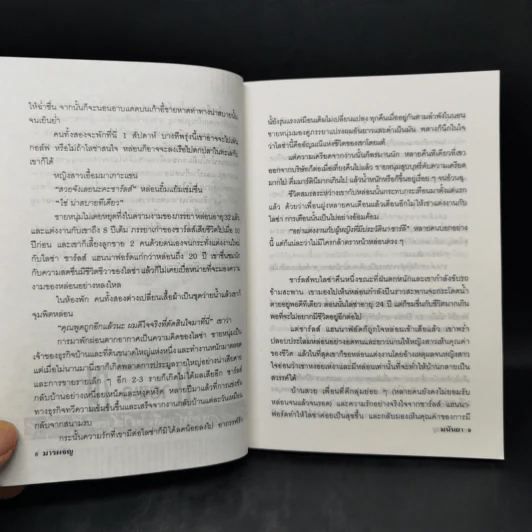 ให้ฉ่ำชื่น จากนั้นก็จะนอนอาบแดดบนเก้าอี้ชายหาด
จนเย็นย่ำ
คนทั้งสองจะพักที่นี่ 1 สัปดาห์ บางทีพรุ่งนี้เขาอาจจะไปเล่น
กอล์ฟ หรือไม่ถ้าไลซ่าสนใจ หล่อนก็อาจจะลงเรือไปตกปลา
เขาก็ได้
หญิงสาวเอื้อมมาเกาะแขน
“สวยจังเลยนะคะชาร์ลส์” หล่อนยิ้มแย้มแช่มชื่น
“ใช่ น่าสบายทีเดียว”
ชายหนุ่มไม่เคยหยุดทึ่งในความงามของภรรยา หล่อนอายุ 32 แล้ว
และแต่งงานกับเขาถึง 8 ปีเต็ม ภรรยาเก่าของชาร์ลส์เสียชีวิตไปเมื่อ 10
ปีก่อน และเขาก็เลี้ยงลูกชาย 2 คนด้วยตนเองจนกระทั่งแต่งงานใหม่
กับไลซ่า ชาร์ลส์ แฮนนาฟอร์ดแก่กว่าหล่อนถึง 20 ปี เขาชื่นชม
กับความสดชื่นมีชีวิตชีวาของไลซ่า แล้วก็ไม่เคยเบื่อหน่ายที่จะมองความ
งามของหล่อนอย่างหลงใหล
ในห้องพัก คนทั้งสองต่างเปลี่ยนเสื้อผ้าเป็นชุดว่ายน้ำแล้วเขาก็
จุมพิตหล่อน
“คุณพูดถูกอีกแล้วนะ ผมดีใจจริงที่ตัดสินใจมาที่นี่” เขาว่า
การมาพักผ่อนตากอากาศเป็นความคิดของไลซ่า ชายหนุ่มเป็น
เจ้าของธุรกิจบ้านและที่ดินขนาดใหญ่แห่งหนึ่ง และทำงานหนักมาตลอด
แต่เมื่อไม่นานมานี้เขาก็เกิดพลาดการประมูลรายใหญ่อย่างน่าเสียดาย
และการขายรายเล็ก ๆ อีก 2-3 รายก็เกิดไม่ได้ผลเสียอีก ชาร์ลส์
กลับบ้านอย่างเหนื่อยเหน็ดและหงุดหงิด หลายปีมาแล้วที่การแข่งขัน
ทางธุรกิจทวีความเข้มข้นขึ้นและเสร็จจากงานกลับบ้านแต่ละวันเหมือน
กลับจากสนามรบ
กระนั้นความรักที่เขามีต่อไลซ่าก็มิได้ลดน้อยลงไป
6 มารผจญ
นี้ยังรุนแรงเหมือนเดิมไม่เปลี่ยนแปลง ทุกคืนเมื่ออยู่กันตามลำพังในห้องนอน
ชายหนุ่มมองดูภรรยาแปรงผมอันยาวนสะดำเป็นมัน พลางก็นึกในใจ
ว่าไลซ่านี้คืออัญมณีแห่งชีวิตของเขาโดยแท้
แต่ความเครียดจากงานนั้นก็สะสมนานนัก หลายคืนทีเดียวที่เขา
ออกจากบริษัทก็ต่อเมื่อเที่ยงคืนไปแล้ว ชายหนุ่มสูบบุหรี่
มากไป ดื่มมาร์ตินีมากเกินไป แล้วน้ำหนักหรือก็ขึ้นอยู่เรื่อย ๆ จนอ้วนฉุ
ชีวิตสมรสระหว่างเขากับหล่อนนั้นกระทบกระเทือนมาตั้งแต่แรก
แล้ว ด้วยว่าเพื่อนฝูงหลายคนเตือนแล้วเตือนอีกไม่ให้เขาแต่งงานกับ
ไลซ่า การเตือนนั้นเป็นไปอย่างอ้อมค้อม
“อย่าแต่งงานกับผู้หญิงที่มีประวัติแบบนี้ชาร์ลี” หลายคนบอกอย่าง
นี้ แต่ก็แน่ละว่าไม่มีใครกล้าตราหน้าหล่อนตรง ๆ
ชาร์ลส์พบไลซ่าคืนหนึ่งขณะที่ฝนตกหนักและเขากำลังขับรถ
ข้ามสะพาน เขามองไปเห็นหล่อนกำลังปีนราวสะพานจะกระโดดน้ำ
ตายอยู่พอดีทีเดียว ตอนนั้นไลซ่าอายุ 24 แต่ก็ขมขื่นกับชีวิตมากเกิน
พอที่จะไม่อยากมีชีวิตอยู่อีกต่อไป
แต่ชาร์ลส์ แฮนนาฟอร์ดก็ฉุดใจหล่อนเข้าเสียแล้ว เขาเพร่ำ
ปลอบประโลมหล่อนอย่างอดทนและยาวนานให้หญิงสาวเห็นคุณค่า
ของชีวิต แล้วในที่สุดเขาก็ขอหล่อนแต่งงานโดยบ้างเหตุผลจนหญิงสาว
ใจอ่อนว่าเขาหลงหล่อน และมีแต่หล่อนเท่านั้นที่จะทำให้บ้านกลายเป็น
สวรรค์ได้
บ้านสวย เพื่อนดีตึกลุ่มย่อย ๆ (หลายคนยังคงไม่ยอมรับ
หล่อนจนแล้วจนรอด) และความรักอย่างจริงใจจากชาร์ลส์ แฮนนา-
ฟอร์ดทำให้ไลซ่าค่อยเป็นสุขขึ้น และกลับมองเห็นคุณค่าของการมี
มนันยา 9